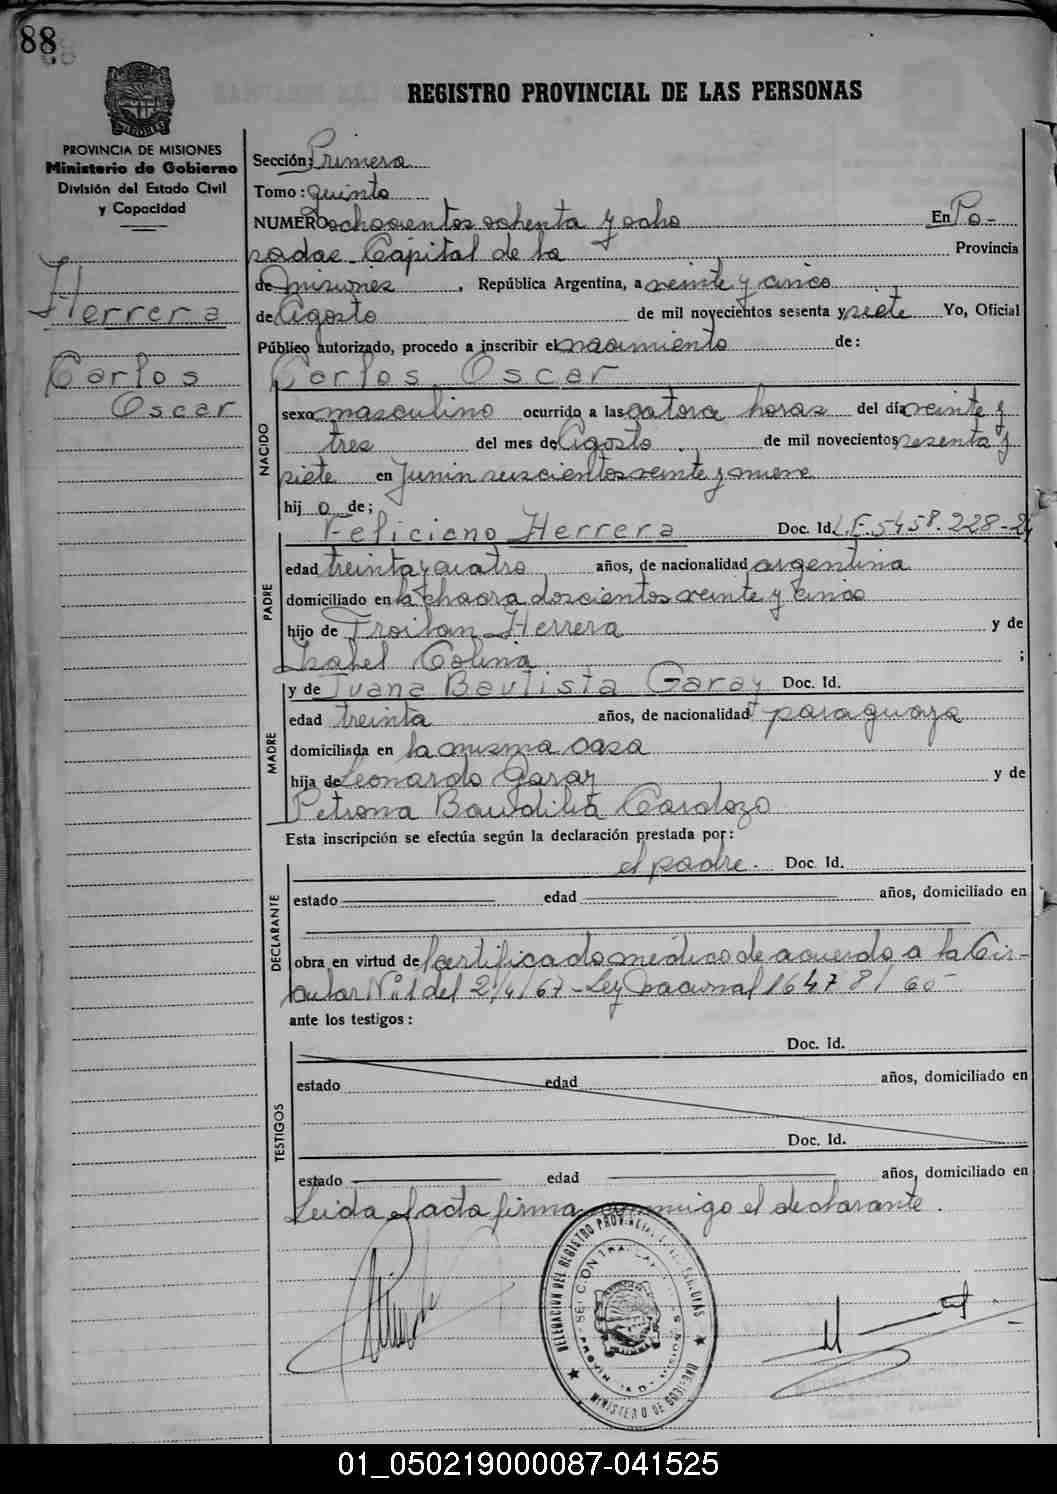 88
REGISTRO PROVINCIAL DE LAS PERSONAS
PROVINCIA DE MISIONES
Ministerio de Gobierno
División del Estado Civil
y Capacidad
Herrera
Carlos
Oscar
Sección: Primera
Tomo: quinto
NUMERO ochocientos ochenta y ocho En Po-
sadas Capital de la Provincia
de Misiones, República Argentina, a veinte y cinco
de Agosto de mil novecientos sesenta y siete Yo, Oficial
Público autorizado, procedo a inscribir el nacimiento de:
Carlos Oscar
NACIDO
sexo masculino ocurrido a las catorce horas del día veinte y
tres del mes de Agosto de mil novecientos sesenta y
siete en Junin seiscientos veinte y nueve
hij o de;
Feliciano Herrera Doc. Id. L.E. 5458.228-
PADRE
edad treinta y cuatro años, de nacionalidad argentina
domiciliado en la chacra doscientos veinte y cinco
hijo de Troilan Herrera y de
Isabel Colina ;
y de Juana Bautista Garay Doc. Id.
MADRE
edad treinta años, de nacionalidad paraguaya
domiciliada en la misma casa
hija de Leonardo Garay y de
Petrona Baudilia Cardozo
Esta inscripción se efectúa según la declaración prestada por:
el padre. Doc. Id.
DECLARANTE
estado edad años, domiciliado en
obra en virtud de certificado médico de acuerdo a la Cir-
cular Nº1 del 2/4/67-Ley Nacional 16478/
ante los testigos:
Doc. Id.
TESTIGOS
estado edad años, domiciliado en
Doc. Id.
estado edad años, domiciliado en
Leida el acta firma conmigo el declarante.
DELEGACION DEL REGISTRO PROVINCIAL
MINISTERIO DE GOBIERNO
01_050219000087-041525